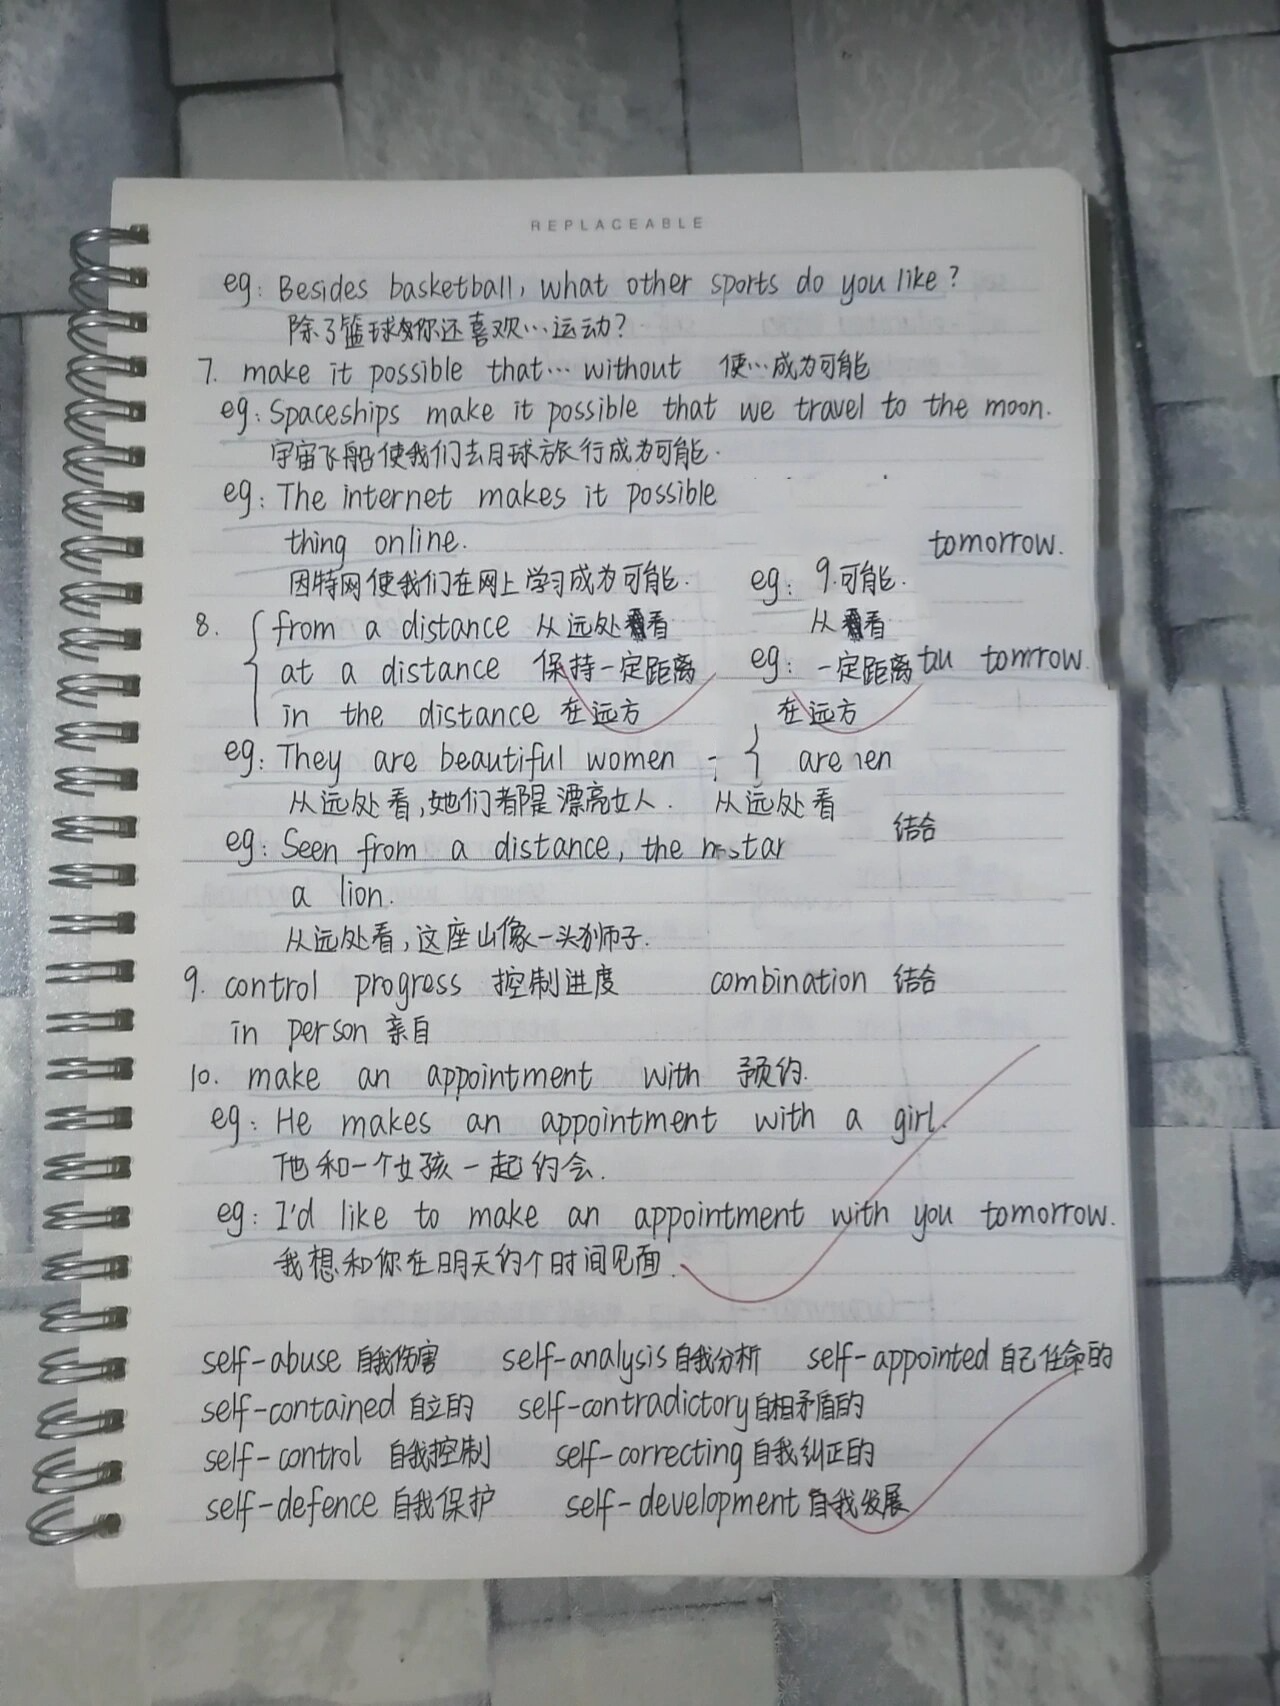 REPLACEABLE
eg: Besides basketball, what other sports do you like?
除了篮球你还喜欢…运动?
7. make it possible that… without 使…成为可能
eg: Spaceships make it possible that we travel to the moon.
宇宙飞船使我们去月球旅行成为可能.
eg: The internet makes it possible
thing online. tomorrow.
因特网使我们在网上学习成为可能. eg: 9.可能.
8. from a distance 从远处看 从看
at a distance 保持一定距离 eg: 一定距离 tomrrow.
in the distance 在远方 在远方
eg: They are beautiful women are
从远处看,她们都是漂亮女人. 从远处看
结合
eg: Seen from a distance, the
a lion.
从远处看,这座山像一头狮子.
9. control progress 控制进度 combination 结合
in person 亲自
10. make an appointment with 预约.
eg: He makes an appointment with a girl.
他和一个女孩一起约会.
eg: I'd like to make an appointment with you tomorrow.
我想和你在明天约个时间见面.
self-abuse 自我伤害 self-analysis 自我分析 self-appointed 自己任命的
self-contained 自立的 self-contradictory 自相矛盾的
self-control 自我控制 self-correcting 自我纠正的
self-defence 自我保护 self-development 自我发展